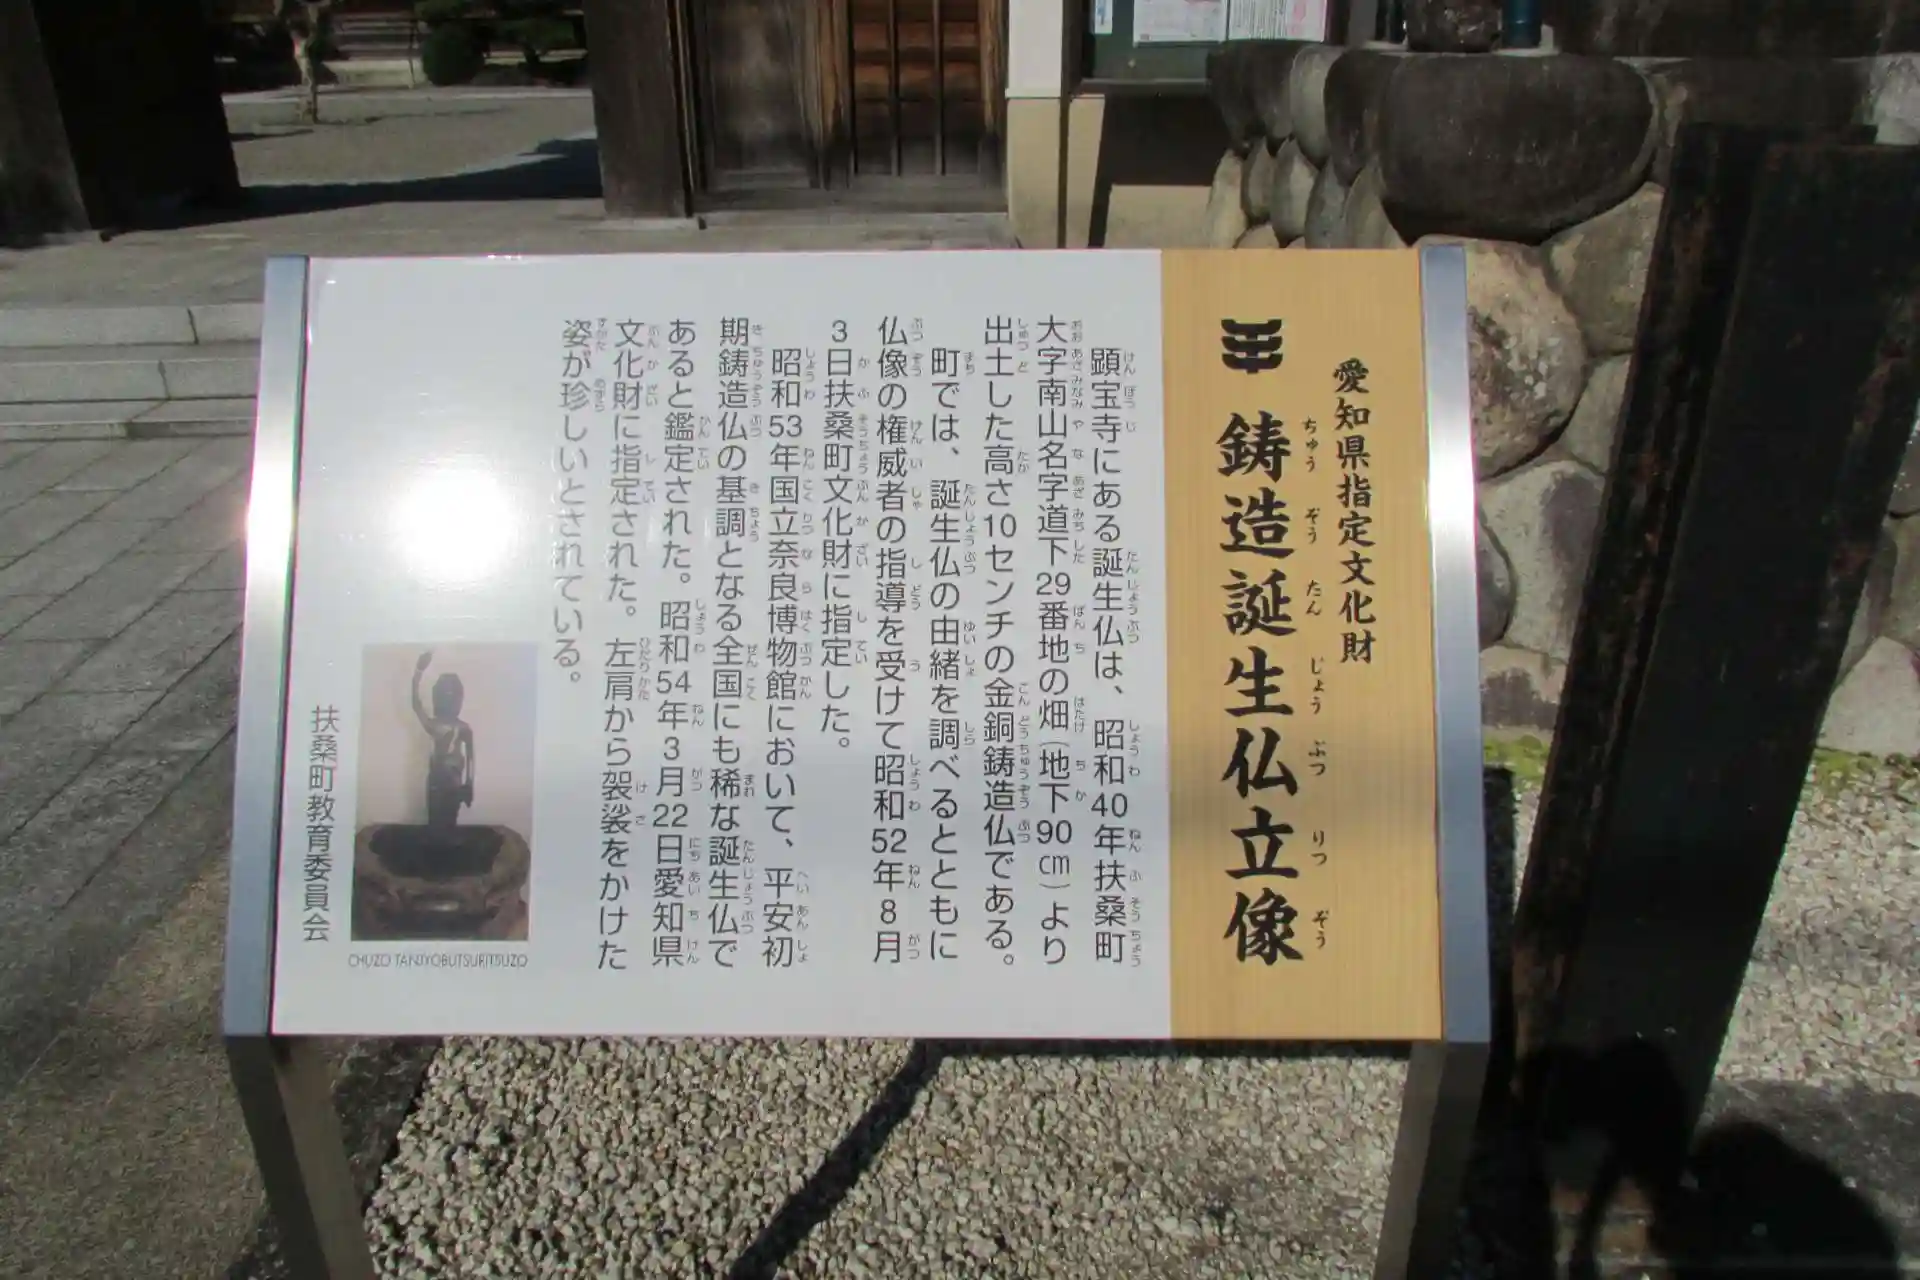 愛知県指定文化財
鋳造誕生仏立像
ちゅう ぞう たん じょう ぶつ りつ ぞう
顕宝寺にある誕生仏は、昭和40年扶桑町
大字南山名字道下29番地の畑(地下90㎝)より
出土した高さ10センチの金銅鋳造仏である。
町では、誕生仏の由緒を調べるとともに
仏像の権威者の指導を受けて昭和52年8月
3日扶桑町文化財に指定した。
昭和53年国立奈良博物館において、平安初
期鋳造仏の基調となる全国にも稀な誕生仏で
あると鑑定された。昭和54年3月22日愛知県
文化財に指定された。左肩から袈裟をかけた
姿が珍しいとされている。
CHUZO TANJYOBUTSURITSUZO
扶桑町教育委員会